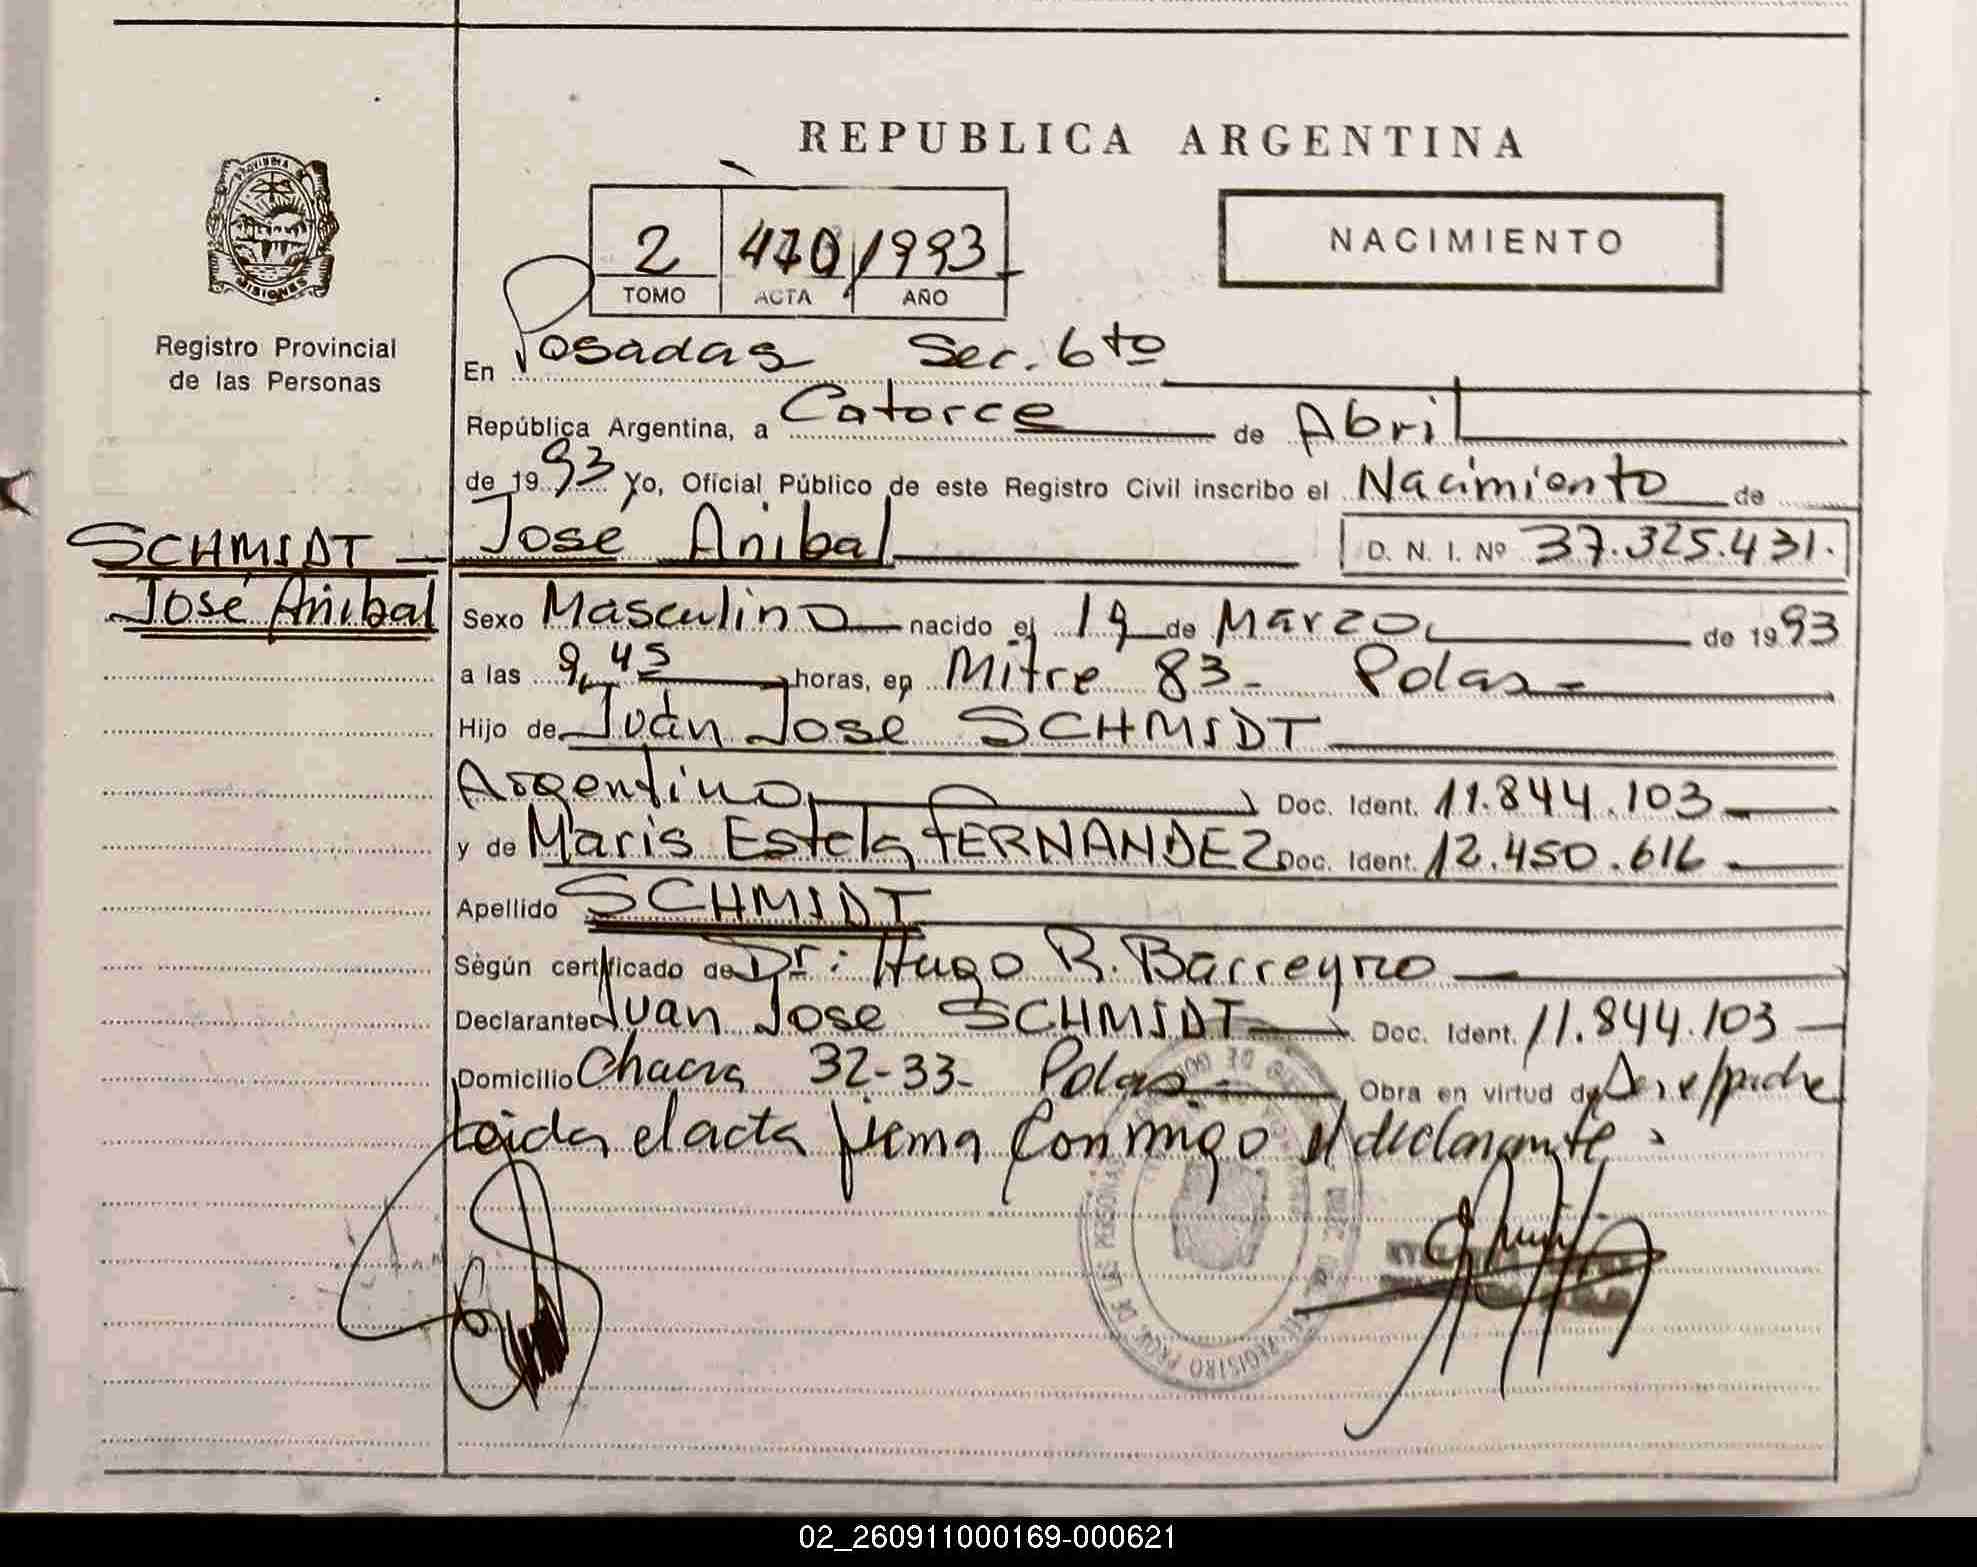 REPUBLICA ARGENTINA
PROVINCIA DE
MISIONES
Registro Provincial
de las Personas
2 470 1993
TOMO ACTA AÑO
NACIMIENTO
En Posadas Sec. 6to
República Argentina, a Catorce de Abril
de 1993 Yo, Oficial Público de este Registro Civil inscribo el Nacimiento de
SCHMIDT
José Anibal
José Anibal D. N. I. Nº 37.325.431.
Sexo Masculino nacido el 19 de Marzo de 1993
a las 9,45 horas, en Mitre 83- Pdas-
Hijo de Juan José SCHMIDT
Argentino Doc. Ident. 11.844.103
y de Maris Estela FERNANDEZ Doc. Ident. 12.450.616
Apellido SCHMIDT
Según certificado de Dr: Hugo R. Barreyro
Declarante Juan Jose SCHMIDT Doc. Ident. 11.844.103
Domicilio Chacra 32-33- Pdas- Obra en virtud de Ser el padre
Leida el acta firma conmigo el declarante.
REGISTRO PROV. DE LAS PERSONAS
02_260911000169-000621